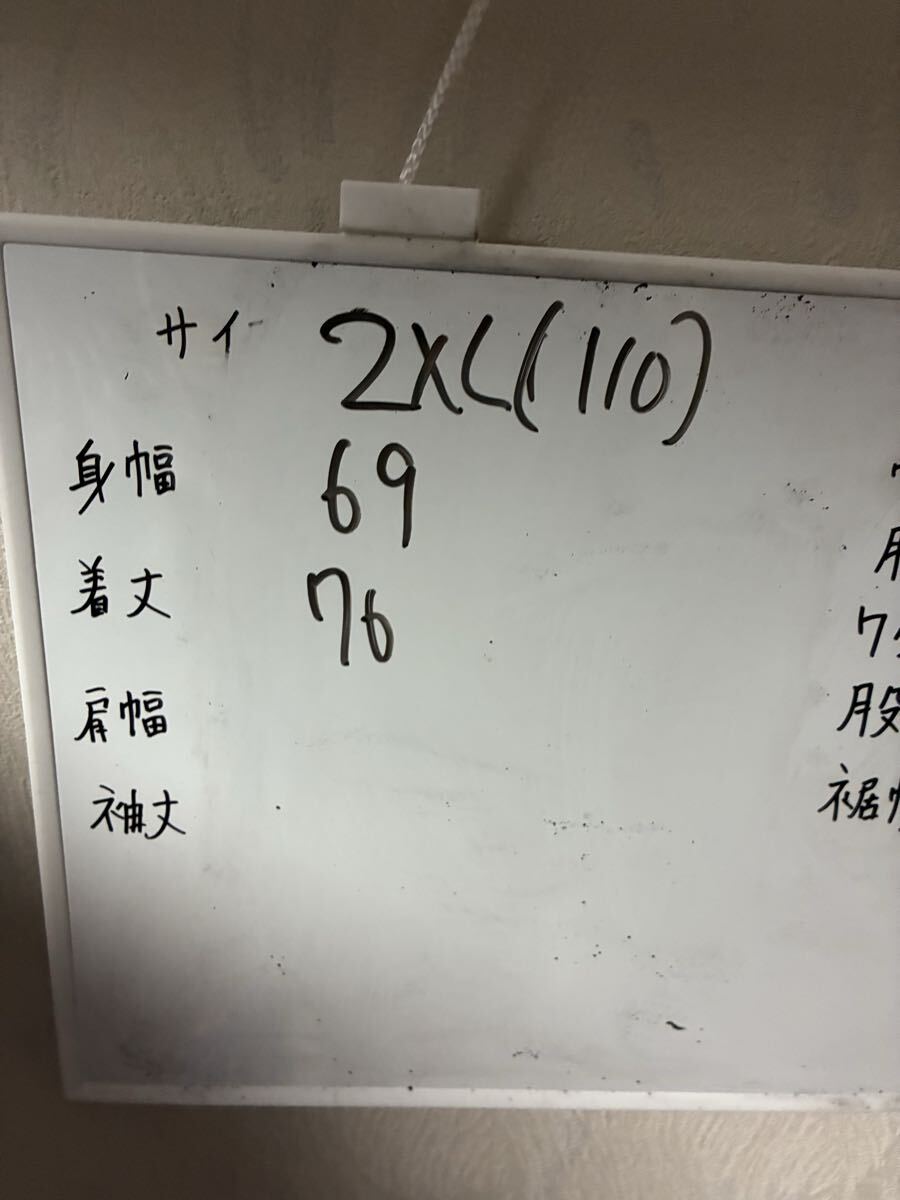 サイ 2XL(110)
身幅 69
着丈 76
肩幅
袖丈
股
裾